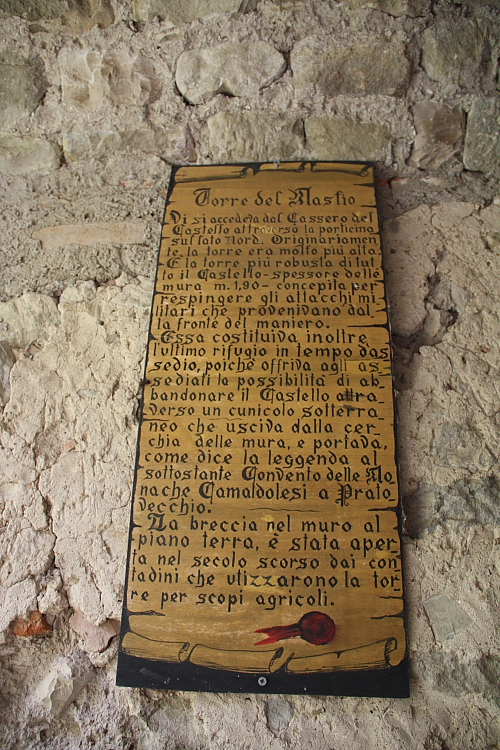 Torre del Mastio
Vi si accedeva dal Cassero del
Castello attraverso la porticina
sul lato Nord. Originariamen
te la torre era molto più alta.
È la torre più robusta di tut
to il Castello-spessore delle
mura m. 1,90- concepita per
respingere gli attacchi mi
litari che provenivano dal
la fronte del maniero.
Essa costituiva inoltre,
l'ultimo rifugio in tempo d'as
sedio, poichè offriva agli as_
sediati la possibilità di ab_
bandonare il Castello attra_
verso un cunicolo sotterra_
neo che usciva dalla cer_
chia delle mura, e portava,
come dice la leggenda al
sottostante Convento delle Mo
nache Camaldolesi a Prato
vecchio.
La breccia nel muro al
piano terra, è stata aper
ta nel secolo scorso dai con
tadini che utizzarono la tor_
re per scopi agricoli.